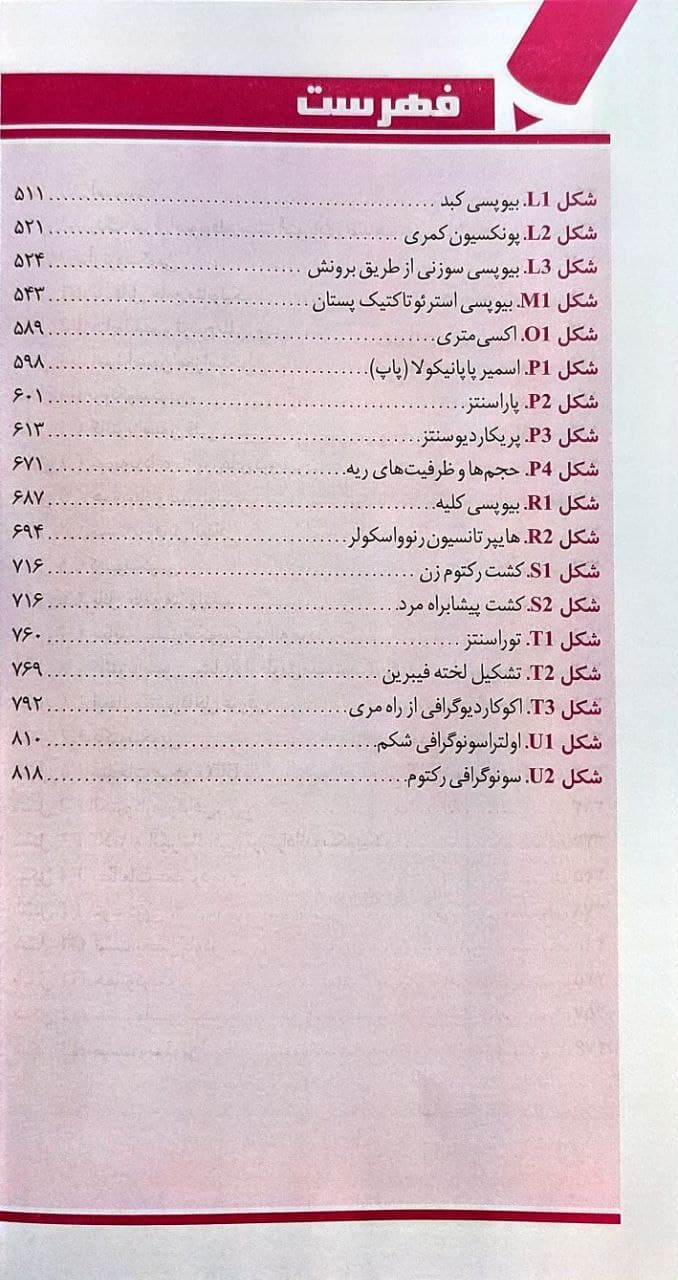 فهرست
شکل L1. بیوپسی کبد ........ ۵۱۱
شکل L2. پونکسیون کمری ........ ۵۲۱
شکل L3. بیوپسی سوزنی از طریق برونش ........ ۵۲۴
شکل M1. بیوپسی استرئوتاکتیک پستان ........ ۵۴۳
شکل O1. اکسی‌متری ........ ۵۸۹
شکل P1. اسمیر پاپانیکولا (پاپ) ........ ۵۹۸
شکل P2. پاراسنتز ........ ۶۰۱
شکل P3. پریکاردیوسنتز ........ ۶۱۳
شکل P4. حجم‌ها و ظرفیت‌های ریه ........ ۶۷۱
شکل R1. بیوپسی کلیه ........ ۶۸۷
شکل R2. هایپرتانسیون رنوواسکولر ........ ۶۹۴
شکل S1. کشت رکتوم زن ........ ۷۱۶
شکل S2. کشت پیشابراه مرد ........ ۷۱۶
شکل T1. توراسنتز ........ ۷۶۰
شکل T2. تشکیل لخته فیبرین ........ ۷۶۹
شکل T3. اکوکاردیوگرافی از راه مری ........ ۷۹۲
شکل U1. اولتراسونوگرافی شکم ........ ۸۱۰
شکل U2. سونوگرافی رکتوم ........ ۸۱۸